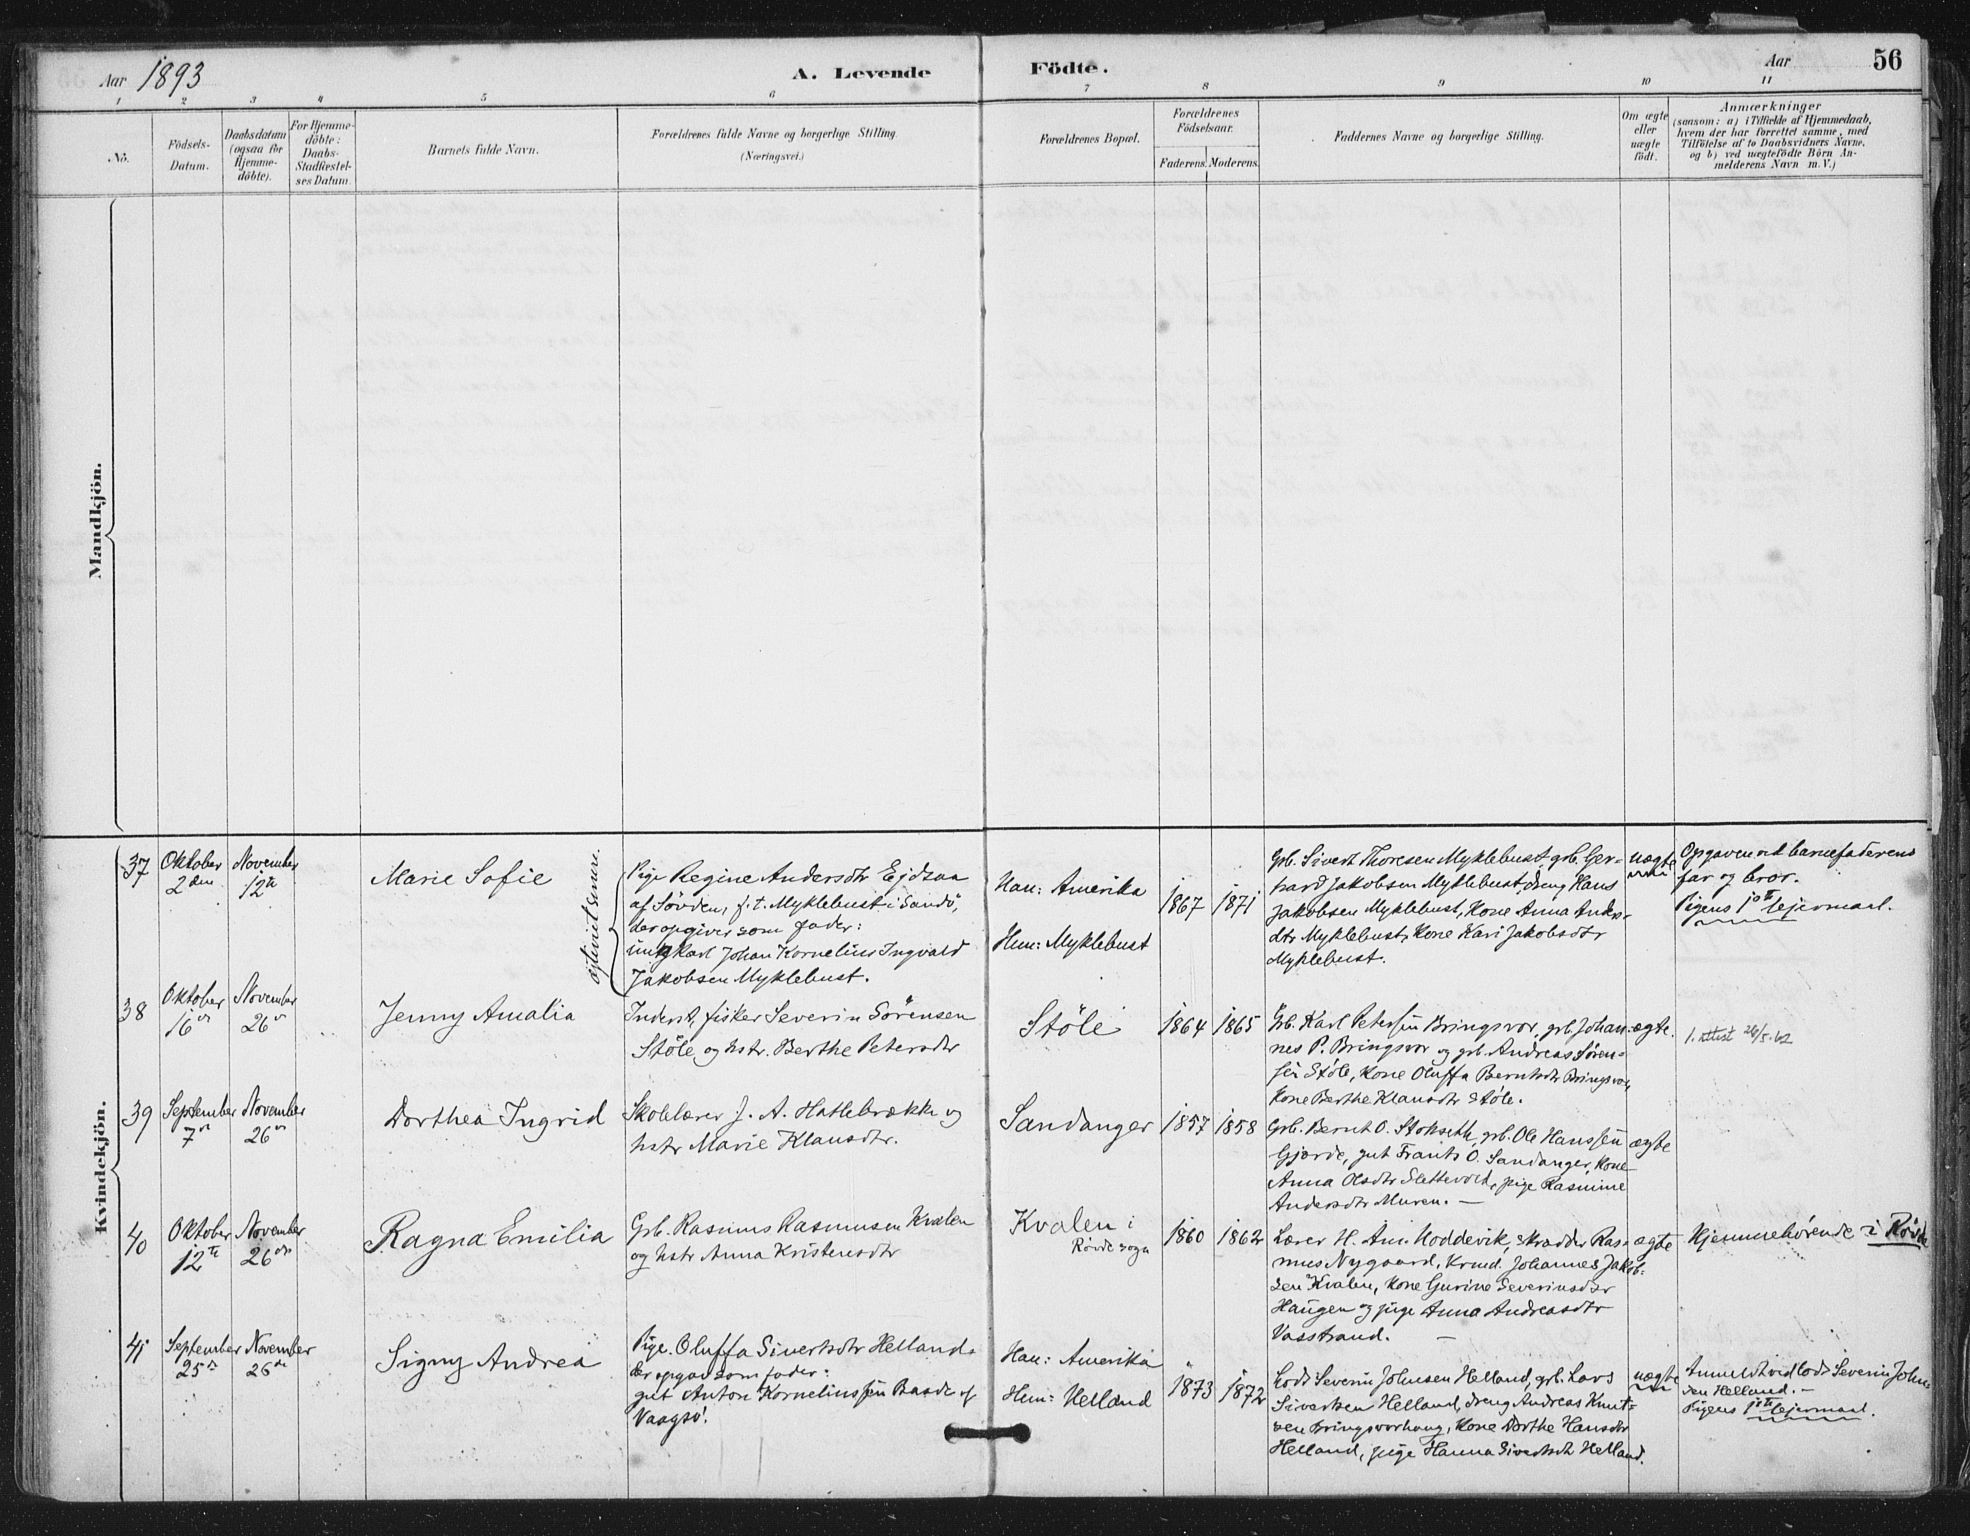 Aar 1893
A. Levende
Födte.
Aar
56
1 2 3 4 5 6 7 8 9 10 11
No.
Födsels-
Datum.
Daabsdatum
(ogsaa for
Hjemme-
döbte).
For Hjemme-
döbte:
Daabs-
Stadfæstel-
ses Datum.
Barnets fulde Navn.
Forældrenes fulde Navne og borgerlige Stilling.
(Næringsvei.)
Forældrenes Bopæl.
Forældrenes
Födselsaar.
Faderens. Moderens.
Faddernes Navne og borgerlige Stilling.
Om ægte
eller
uægte
födt.
Anmærkninger
(saasom: a) i Tilfælde af Hjemmedaab,
hvem der har forrettet samme, med
Tilföielse af to Daabsvidners Navne,
og b) ved uægtefödte Börn An-
melderens Navn m. V.)
Mandkjön.
Kvindekjön.
37
Oktober
2den
November
12te
Marie Sofie
Pige Regine Andersdtr Ejdsaa
af Sövden, f. t. Myklebust i Sandö,
der opgiver som fader:
ungkarl Johan Kornelius Ingvald
Jakobsen Myklebust.
Han: Amerika
Hun: Myklebust
1867
1871
Grb. Sivert Thoresen Myklebust, grb. Ger-
hard Jakobsen Myklebust, dreng Hans
Jakobsen Myklebust, Kone Anna Anders-
dtr Myklebust, Kone Kari Jakobsdtr
Myklebust.
uægte
Opgaven ved barnefaderens
far og bror.
Pigens 1ste lejermaal.
38
Oktober
16de
November
26de
Jenny Amalia
Inderst, fisker Severin Sörensen
Stöle og hstr. Berthe Petersdtr
Stöle
1864
1865
Grb. Karl Petersen Bringsvor, grb. Johan-
nes P. Bringsvor og grb. Andreas Sören-
sen Stöle, Kone Oluffa Berntsdtr Bringsvor,
Kone Berthe Klausdtr Stöle.
ægte.
1. Attest 24/5-62
39
September
7de
November
26de
Dorthea Ingrid
Skolelærer J. A. Hatlebrække og
hstr Marie Klausdtr.
Sandanger
1857
1858
Grb. Bernt O. Stokseth, grb. Ole Hanssen
Gjærde, gut Frants O. Sandanger, Kone
Anna Olsdtr Slettevold, pige Rasmine
Andersdtr Muren. —
ægte
40
Oktober
12te
November
26de
Ragna Emilia
Grb. Rasmus Rasmusen Kvalen
og hstr Anna Kristensdtr
Kvalen i
Rövde sogn
1860
1862
Lærer H. Am. Hoddevik, skrædder Ras-
mus Nygaard, Krmd. Johannes Jakob-
sen Kvalen, Kone Gurine Severinsdtr
Haugen og pige Anna Andreasdtr
Vasstrand. —
ægte
Hjemmehörende i Rövde
41
September
25de
November
26de
Signy Andrea
Pige Oluffa Sivertsdtr Helland.
der opgav som fader:
gut Anton Kornelinssen Baade af
Vaagsö.
Han: Amerika
Hun: Helland
1873
1872
Lods Severin Johnsen Helland, grb. Lars
Sivertsen Helland, dreng Andreas Knut-
sen Bringsvorhaug, Kone Dorthe Hansdtr
Helland, pige Hanna Sivertsdt Helland.
uægte
Anmeldt ved lods Severin John-
sen Helland. —
Pigens 1ste lejermaal.